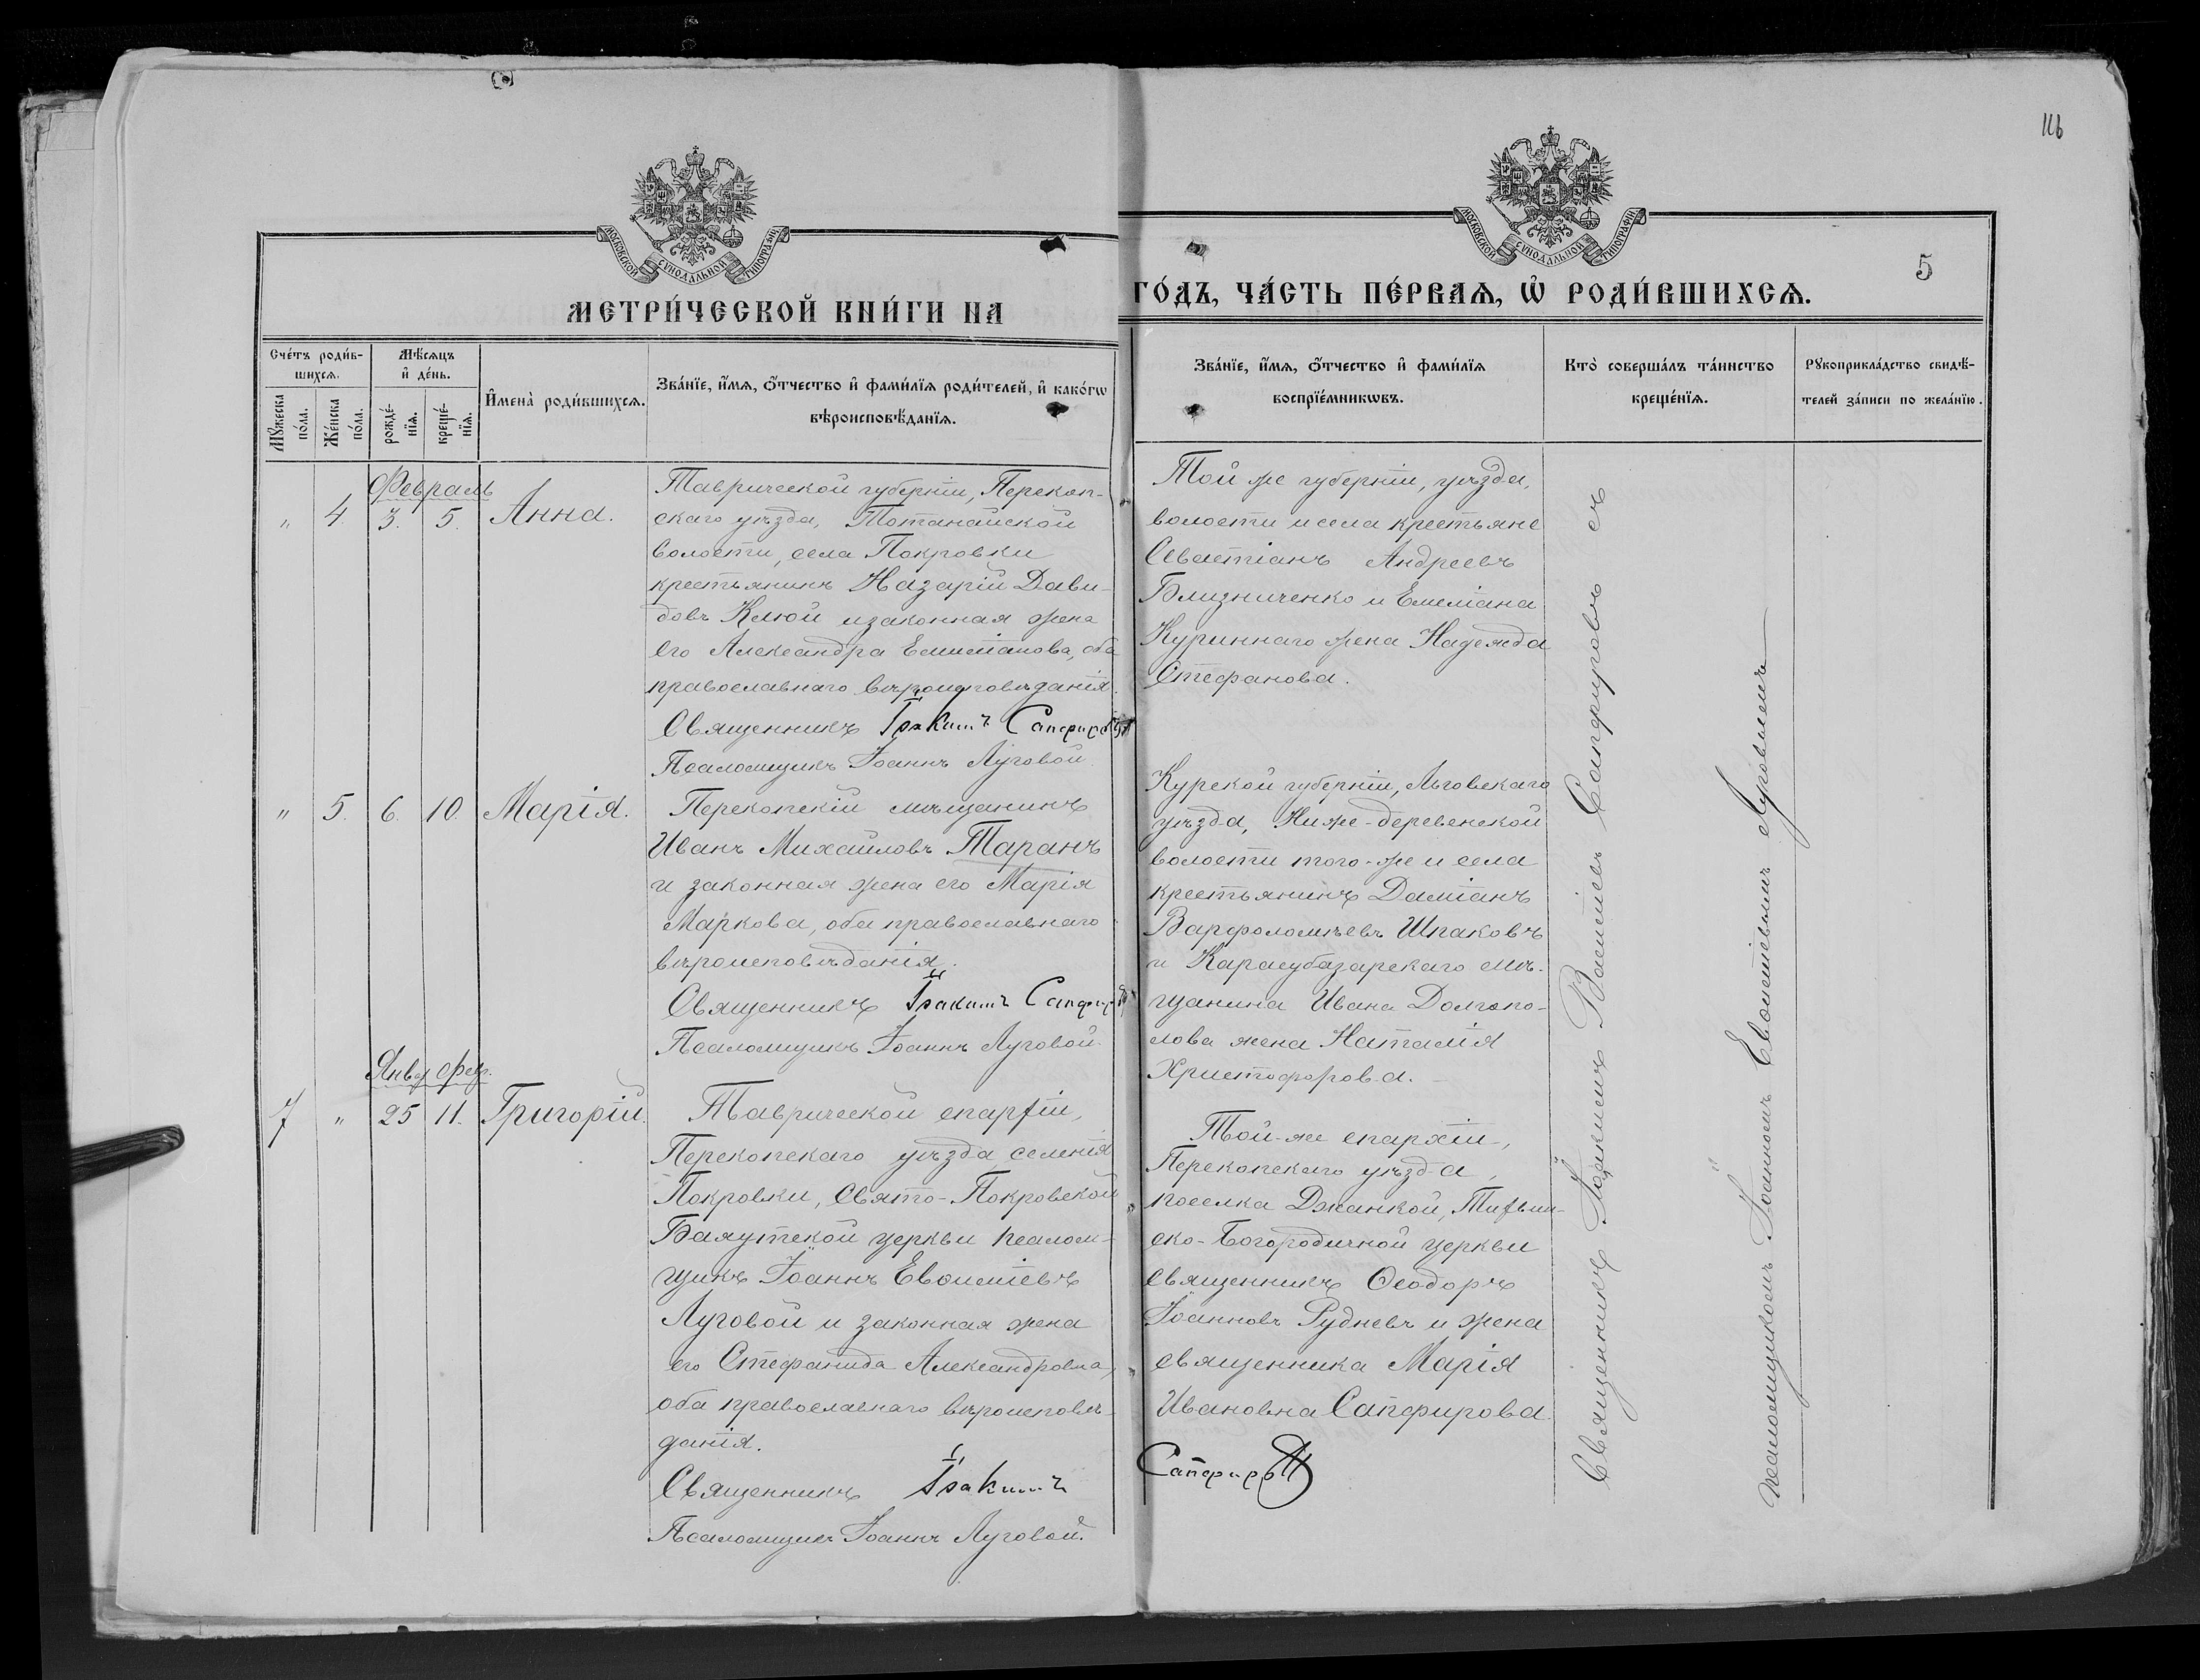 116
МОСКОВСКОЙ СУНОДАЛЬНОЙ ТИПОГРАФІИ
МОСКОВСКОЙ СУНОДАЛЬНОЙ ТИПОГРАФІИ
5
МЕТРИ́ЧЕСКОЙ КНИ́ГИ НА
ГО́ДЪ, ЧА́СТЬ ПЕ́РВАѦ, Ѡ҆ РОДИ́ВШИХСѦ.
Сче́тъ роди́в-
шихсѧ.
Мѣ́сѧцъ
и҆ де́нь.
Мꙋ́жеска
по́ла.
Же́нска
по́ла.
рожде́-
нїѧ.
креще́-
нїѧ.
И҆мена̀ роди́вшихсѧ.
Зва́нїе, и҆́мѧ, ѻ҆́тчество и҆ фами́лїѧ роди́телей, и҆ како́гѡ
вѣроисповѣ́данїѧ.
Зва́нїе, и҆́мѧ, ѻ҆́тчество и҆ фами́лїѧ
воспрїе́мникѡвъ.
Кто̀ соверша́лъ та́инство
креще́нїѧ.
Рꙋкоприкла́дство свидѣ́-
телей за́писи по жела́нїю.
Февраль
" 4. 3. 5. Анна.
Таврической губерніи, Перекоп-
скаго уѣзда, Тотанайской
волости, села Покровки
крестьянинъ Назарій Дави-
довъ Клюй и законная жена
его Александра Емиліанова, оба
православнаго вѣроисповѣданія.
Священникъ Іоакимъ Сапфировъ
Псаломщикъ Іоаннъ Луговой.
Той же губерніи, уѣзда,
волости и села крестьяне
Севастіанъ Андреевъ
Близниченко и Емеліана
Куриннаго жена Надежда
Стефанова.
" 5. 6. 10. Марія.
Перекопскій мѣщанинъ
Иванъ Михайловъ Таранъ
и законная жена его Марія
Маркова, оба православнаго
вѣроисповѣданія.
Священникъ Іоакимъ Сапфировъ
Псаломщикъ Іоаннъ Луговой.
Курской губерніи, Льговскаго
уѣзда, Ниже-деревенской
волости того-же и села
крестьянинъ Даміанъ
Варфоломѣевъ Шпаковъ
и Карасубазарскаго мѣ-
щанина Ивана Долгопо-
лова жена Наталія
Христофорова.
Янвр. Февр.
7 " 25 11. Григорій.
Таврической епархіи,
Перекопскаго уѣзда селенія
Покровки, Свято-Покровской
Баяутской церкви псалом-
щикъ Іоаннъ Евѳиміевъ
Луговой и законная жена
его Стефанида Александровна,
оба православнаго вѣроисповѣ-
данія.
Священникъ Іоакимъ
Псаломщикъ Іоаннъ Луговой.
Той-же епархіи,
Перекопскаго уѣзда,
поселка Джанкой, Тихвин-
ско-Богородичной церкви
священникъ Ѳеодоръ
Іоанновъ Рудневъ и жена
священника Марія
Ивановна Сапфирова.
Сапфировъ
Священникъ Іоакимъ Васильевъ Сапфировъ съ
псаломщикомъ Іоанномъ Евѳиміевымъ Луговымъ